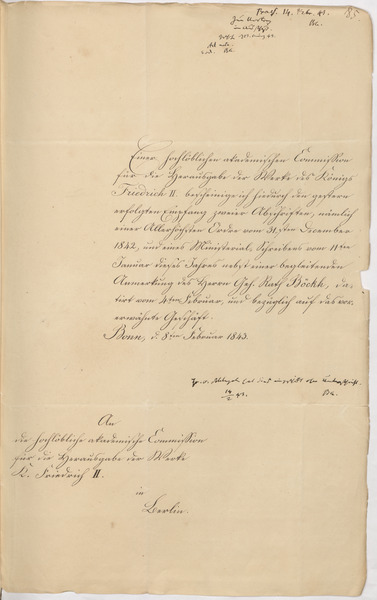 85.
14. Feb. 43.
Bkh.
Einer hochlöblichen akademischen Commission
für die Herausgabe der Werke des Königs
Friedrich II. bescheinige ich hiedurch den gestern
erfolgten Empfang zweier Abschriften, nämlich
einer Allerhöchsten Order vom 31.sten December
1842, und eines Ministerial-Schreibens vom 11ten
Januar dieses Jahres nebst einer begleitenden
Anmerkung des Herrn Geh. Rath Böckh, da-
tirt vom 4ten Februar, und bezüglich auf das vor-
erwähnte Geschäft.
Bonn, d. 8ten Februar 1843.
14/2 43.
An
die hochlöbliche akademische Commission
für die Herausgabe der Werke
K. Friedrich II.
in
Berlin.